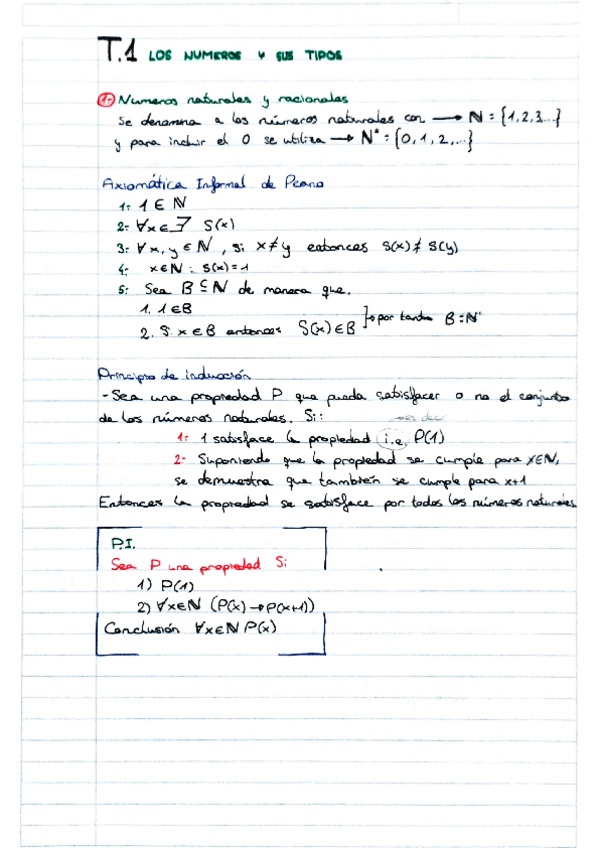 T.1 LOS NUMEROS Y SUS TIPOS
1- Numeros naturales y racionales
Se denomina a los números naturales con → ℕ = {1,2,3...}
y para incluir el 0 se utiliza → ℕ* = {0,1,2,...}
Axiomática Informal de Peano
1- 1 ∈ ℕ
2- ∀x ∈ ∃ S(x)
3- ∀x, y ∈ ℕ, si x ≠ y entonces S(x) ≠ S(y)
4- x ∈ ℕ : S(x) = 1
5- Sea B ⊆ ℕ de manera que.
1. 1 ∈ B
2. Si x ∈ B entonces S(x) ∈ B → por tanto B = ℕ
Principio de inducción
- Sea una propiedad P que pueda satisfacer o no el conjunto
de los números naturales. Si: → es decir
1- 1 satisface la propiedad i.e. P(1)
2- Suponiendo que la propiedad se cumple para x ∈ ℕ,
se demuestra que también se cumple para x+1
Entonces la propiedad se satisface por todos los números naturales
P.I.
Sea P una propiedad Si
1) P(1)
2) ∀x ∈ ℕ (P(x) → P(x+1))
Conclusión ∀x ∈ ℕ P(x)